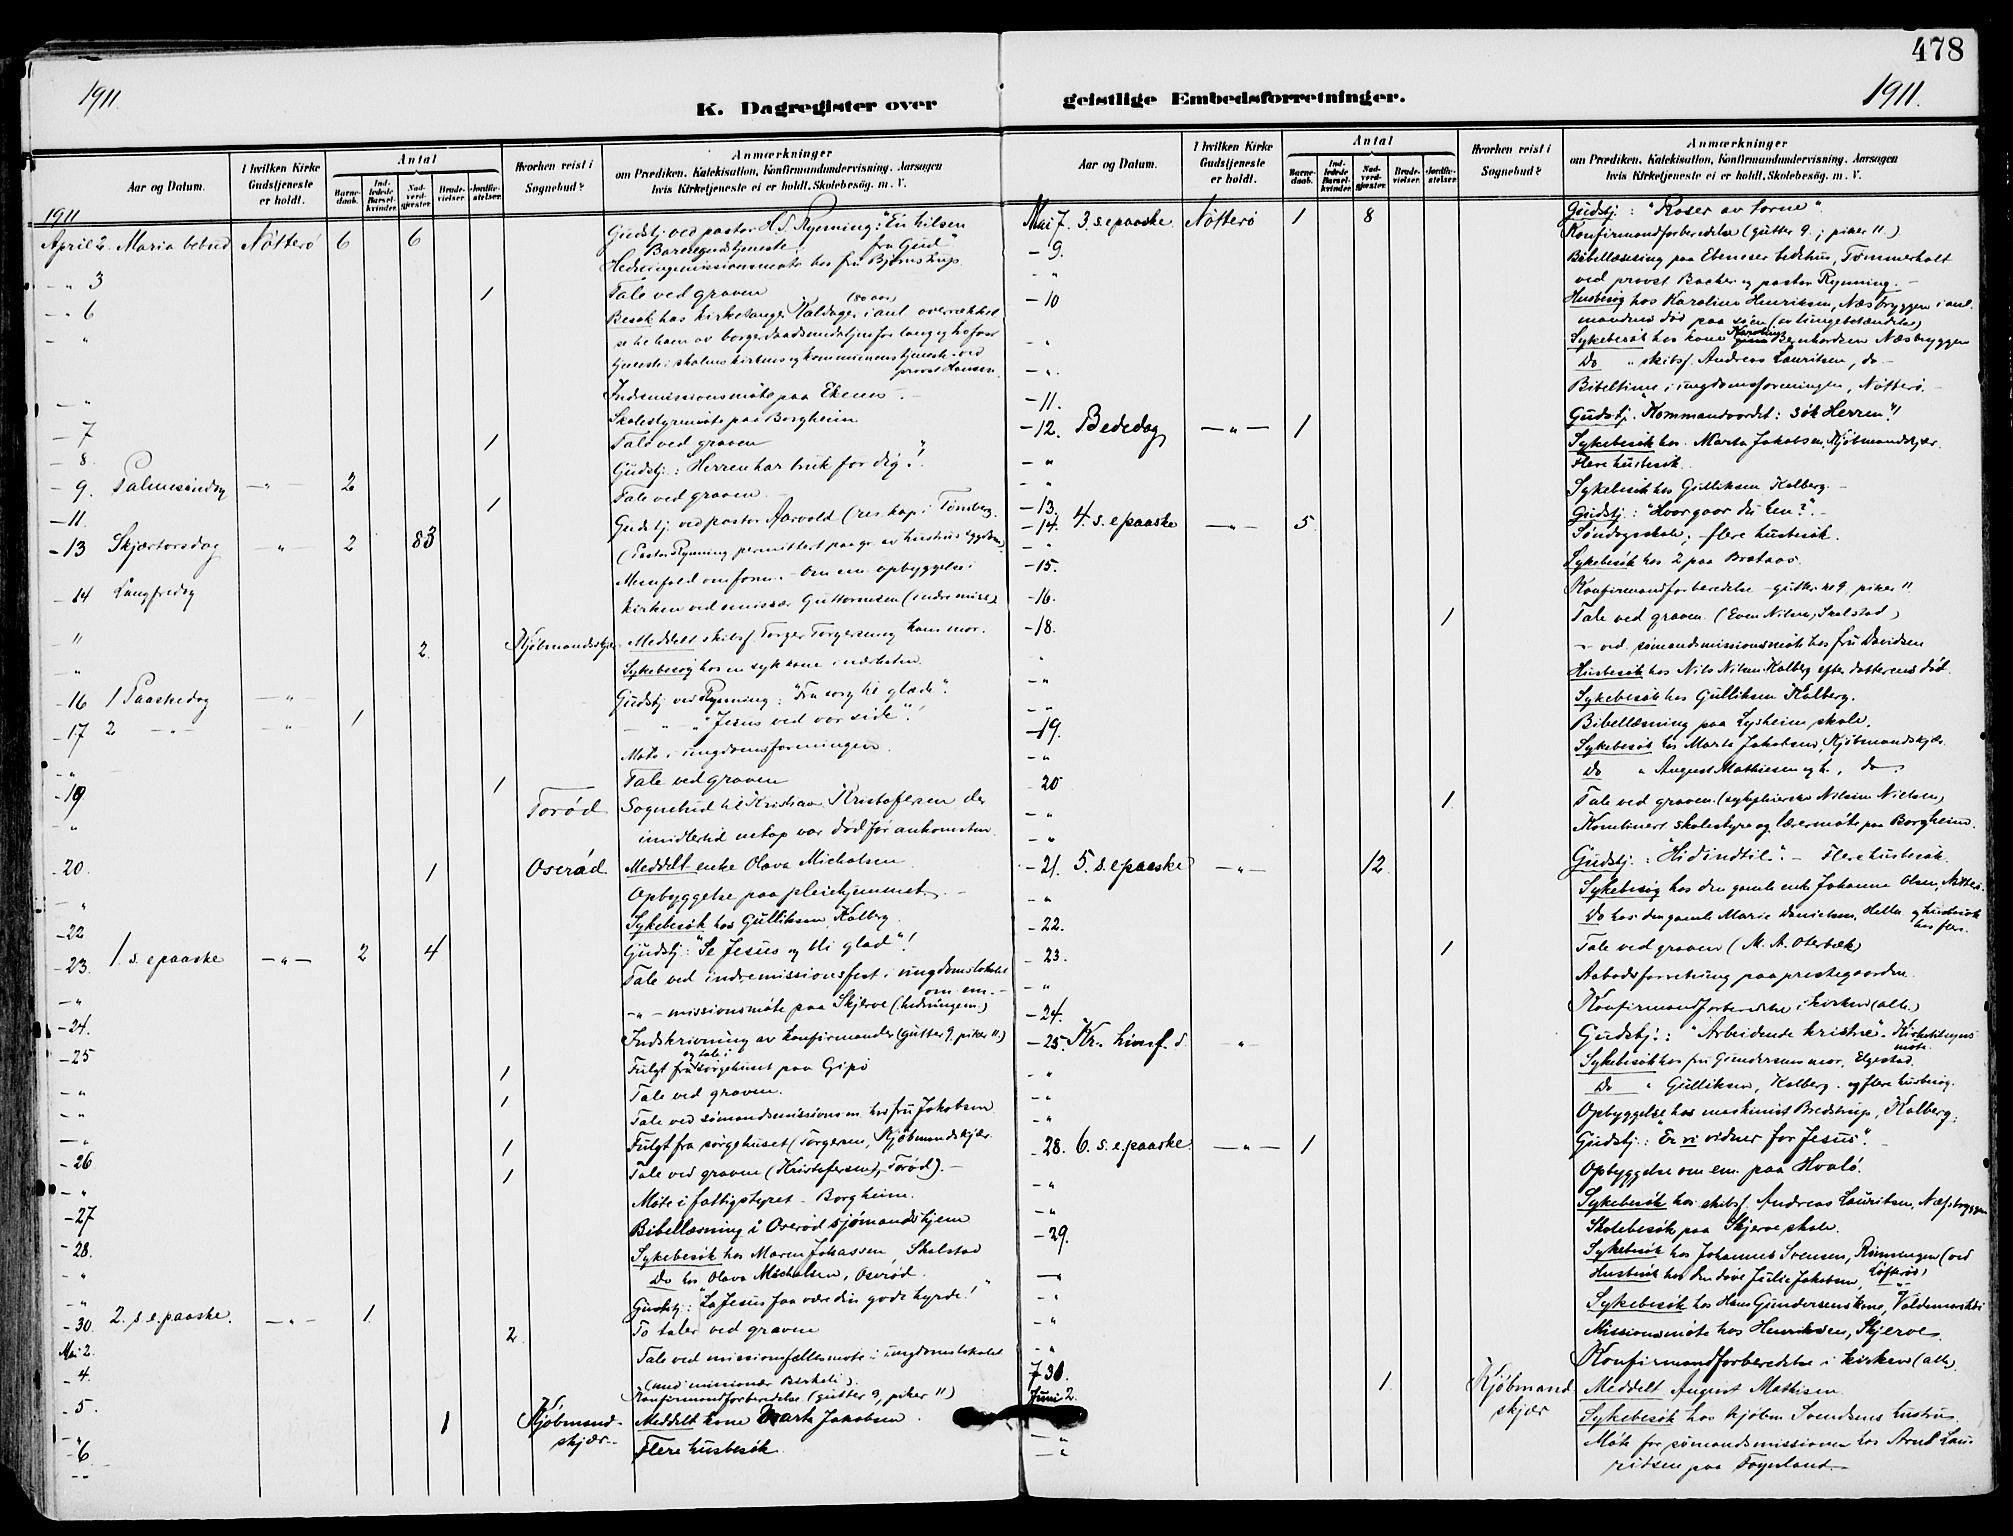 478
1911.
1911.
K. Dagregister over
geistlige Embedsforretninger.
Aar og Datum.
I hvilken Kirke Gudstjeneste er holdt.
Antal
Barne-daab.
Ind-ledede Barsel-kvinder.
Nad-verd-gjæster.
Brude-vielser.
Jordfæ-stelser.
Hvorhen reist i Sognebud?
Anmærkninger
om Prædiken, Katekisation, Konfirmandundervisning, Aarsagen
hvis Kirketjeneste ei er holdt, Skolebesøg. m. V.
1911
April 2. Maria bebud Nøtterø 6 6 Gudstj. ved pastor H. S. Rynning: "En hilsen
Barnegudstjeneste fra Gud".
Hedningemissionsmøte hos fru Bjørnstrup.
- " 3 1 Tale ved graven
- " 6 Besøk hos kirkesanger Valdager i anl. overrækkel
(80 aar)
se be ham av borgerdaadsmedaljen for lang og hofast
tjeneste i skolens kirkens og kommunens tjeneste ved
provst Hansen.
- " Indremissionsmøte paa Ekenes. -
- 7 Skolestyremøte paa Borgheim
- 8. 1 Tale ved graven
- 9. Palmesøndag - " - 2 Gudstj.: "Herren har bruk for dig"!
- 11. 1 Tale ved graven. -
- 13 Skjærtorsdag - " - 2 83 Gudstj. ved pastor Aarvold (res. kap. i Tønsberg.
(Pastor Rynning permittert paa gr. av hustrus sygdom)
- 14 Langfredag Messefald om form. - Om em. opbyggelse i
kirken ved emissær Guttormsen (indremiss.)
" 2 Kjøbmandsskjær Meddelt skibsf. Torger Torgersen og hans mor.
" Sykebesøg hos en syk kone i nærheten.
- 16 1 Paaskedag - " - Gudstj. ved Rynning: "Fra sorg til glæde".
- 17 2 - " - - " - 1 - " - "Jesus ved vor side"!
- " Møte i ungdomsforeningen.
- 19 1 Tale ved graven
- " Torød Sognebud til Kristian Kristofersen der
imidlertid netop var død før ankomsten.
- 20. 1 Oserød Meddelt enke Olava Micholsen
- " Opbyggelse paa pleiehjemmet. -
- 22 Sykebesøk hos Gulliksen Kolberg.
- 23. 1. s. e paaske - " - 2 4 Gudstj.: "Se Jesus og bli glad"!
- " Tale ved indremissionsfest i ungdomslokalet
om em. -
- 24. - " - missionsmøte paa Skjerve (hedningem.)
- 25 Indskrivning av konfirmander (gutter 9, piker 11.)
- " 1 Fulgt fra og tale i sørgehuset paa Gipø
- " 1 Tale ved graven.
- " Tale ved sømandsmission em. hos fru Jakobsen
- 26 1 Fulgt fra sørgehuset (Torgersen, Kjøbmandskjær
- " 1 Tale ved graven (Kristofersen, Torød). -
- 27 Møte i fattigstyret - Borgheim.
- 28. Bibellæsning i Oserød sjømandshjem
- " Sykebesøk hos Maren Johassen, Skalstad
- " Do hos Olava Micholsen, Oserød.
- 30. 2. s e. paaske. - " - 1 Gudstj.: "La Jesus faa være din gode hyrde!"
Mai 2. 2 To taler ved graven
- 4. Tale ved missionsfællesmøte i ungdomslokalet
(med missionær Birkeli).
- 5. Konfirmandforberedelse (gutter 9, piker 11)
- " 1 Kjøbmand-skjær Meddelt kone Marta Jakobsen.
- 6. Flere husbesøk
Aar og Datum.
I hvilken Kirke Gudstjeneste er holdt.
Antal
Barne-daab.
Ind-ledede Barsel-kvinder.
Nad-verd-gjæster.
Brude-vielser.
Jordfæ-stelser.
Hvorhen reist i Sognebud?
Anmærkninger
om Prædiken, Katekisation, Konfirmandundervisning, Aarsagen
hvis Kirketjeneste ei er holdt, Skolebesøg. m. V.
Mai 7. 3. s. e paaske Nøtterø 1 8 Gudstj.: "Roser av torne".
Konfirmandforberedelse (gutter 9.; piker 11.)
- 9. Bibellæsning paa Ebeneser bedehus, Tømmerholt
ved provst Baaker og pastor Rynning. -
- 10 Husbesøg hos Karoline Henriksen, Næsbryggen i anl.
mandens død paa sjøen (av lungebetændelse)
- " Sykebesøk hos kone Karoline Bernhardsen Næsbryggen
- " Do " skibsf. Andreas Lauritsen, do -
- 11. Bibeltime i ungdomsforeningen, Nøtterø. -
- 12. Bededag - " - 1 Gudstj. "Kommandoordet: søk Herren"!
- " Sykebesøk hos Marta Jakobsen, Kjøbmandskjær
- " Flere husbesøk.
- 13. Sykebesøk hos Gulliksen Kolberg. -
- 14. 4. s. e paaske - " - 5 Gudstj.: "Hvor gaar du hen?". -
- " Søndagsskole, flere husbesøk.
- 15. Sykebesøk hos 2 paa Brataas
- 16. Konfirmandforberedelse - gutter kl 9, piker 11.
- 18. 1 Tale ved graven. (Even Nilsen, Skalstad)
- " - ved sømandsmissionsmøte hos fru Davidsen
- " Husbesøk hos Nils Nilsen Kolberg efter datterens død.
- " Sykebesøk hos Gulliksen Kolberg.
- 19. Bibellæsning paa Lysheim skole.
- " Sykebesøk hos Marta Jakobsen, Kjøbmandskjær
- " Do " August Mathiesen og h., do
- 20 1 Tale ved graven. (sykepleierske Nilsine Nielsen)
- " Kombinert skolestyre og lærermøte paa Borgheim.
- 21. 5. s. e paaske - " - 12 Gudstj.: "Hid indtil". - Flere husbesøk.
- " Sykebesøg hos den gamle enke Johanne Olsen, Nøtterø
- 22. Do hos den gamle Marie Danielsen, Hella og husbesøk hos flere.
- 23. 1 Tale ved graven (M. A. Oterbæk)
- " Aabodsforretning paa prestegaarden.
- 24. Konfirmandforberedelse i kirken (alle)
- 25. Kr. himf. d. - " - Gudstj.: "Arbeidende kristne". Kirketilsyns møte.
- " Sykebesøk hos fru Gundersens mor, Elgestad.
- " Do " Gulliksen, Kolberg. og flere husbesøg.
- " Opbyggelse hos maskinist Bredstrup, Kolberg.
- 28. 6. s. e. paaske - " - 1 Gudstj.: "Er vi vidner for Jesus". -
- " Opbyggelse om em. paa Hvalø.
- " Sykebesøk hos skibsf. Andreas Lauritsen, Næsbryggen
- 29. Skolebesøk paa Skjerve skole
- " Sykebesøk hos Johannes Svensen, Rønningen (ved
- " Husbesøk hos den døve Julie Jakobsen, Løfterød)
- " Sykebesøk hos Hans Gundersens kone, Voldemarsløi
- " Missionsmøte hos Henriksen, Skjerve.
30. Konfirmandforberedelse i kirken (alle)
Juni 2. 1 Kjøbmand skjær Meddelt August Mathisen.
- " Sykebesøk hos kjøbm. Svendsens hustru.
- " Møte for sømandsmissionen hos Arnt Lau-
ridsen paa Fogerland. -